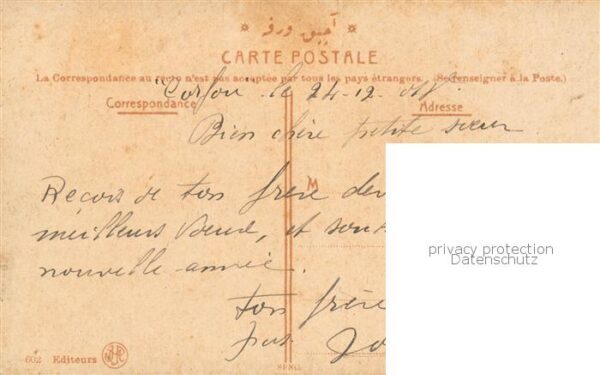 آچيق ورقه
CARTE POSTALE
La Correspondance au recto n'est pas acceptée par tous les pays étrangers. (Se renseigner à la Poste.)
Correspondance
Adresse
le 24-12
Bien chère petite sœur
Recois de ton frère
meilleurs et
nouvelle année.
ton frère
602 Editeurs
privacy protection
Datenschutz